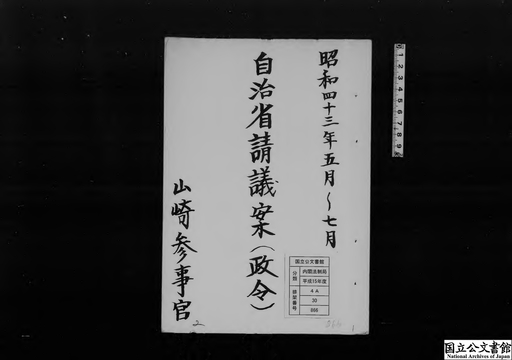 昭和四十三年五月~七月
自治省請議案(政令)
山崎参事官
国立公文書館
分類
内閣法制局
平成15年度
排架番号
4A
30
2
国立公文書館
National Archives of Japan